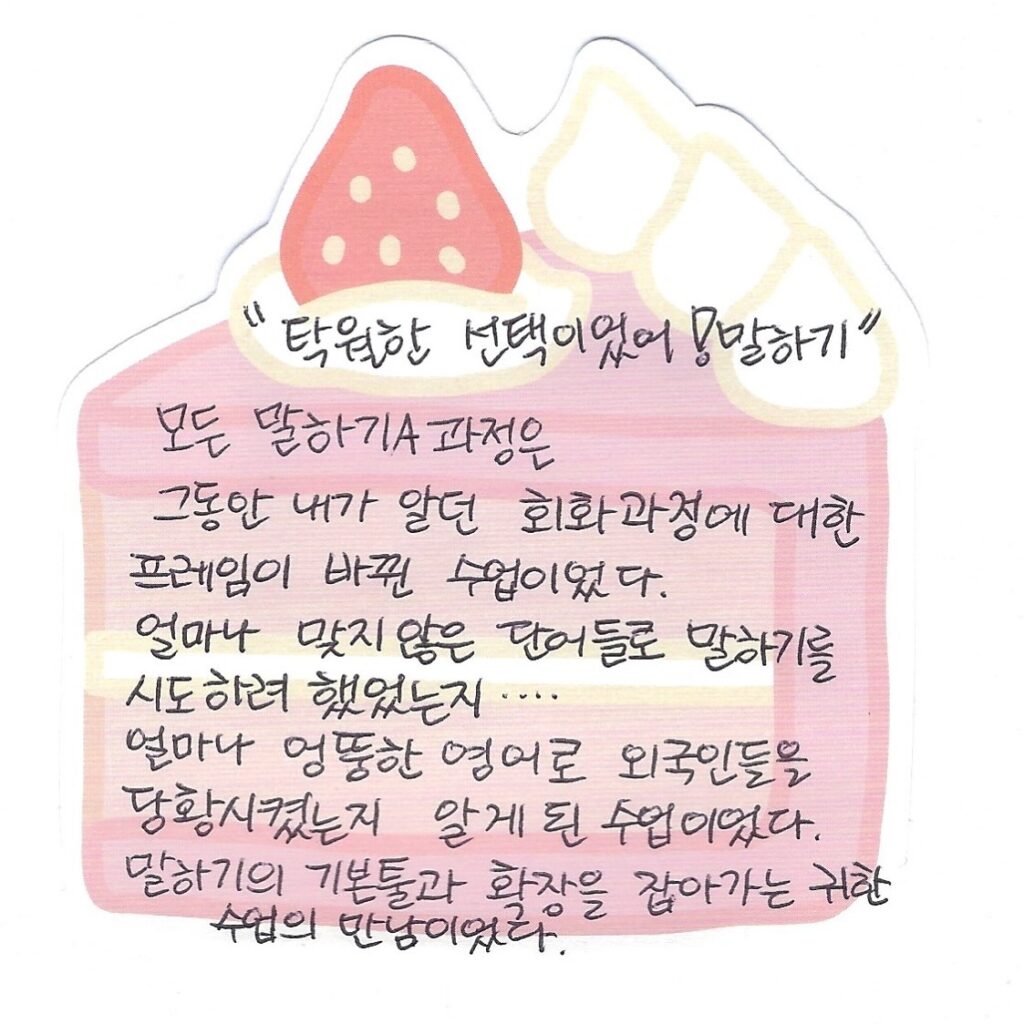 "탁월한 선택이었어! 말하기"
모든 말하기A 과정은
그동안 내가 알던 회화과정에 대한
프레임이 바뀐 수업이었다.
얼마나 맞지않은 단어들로 말하기를
시도하려 했었는지 ····
얼마나 엉뚱한 영어로 외국인들을
당황시켰는지 알게 된 수업이었다.
말하기의 기본툴과 확장을 잡아가는 귀한
수업의 만남이었다.